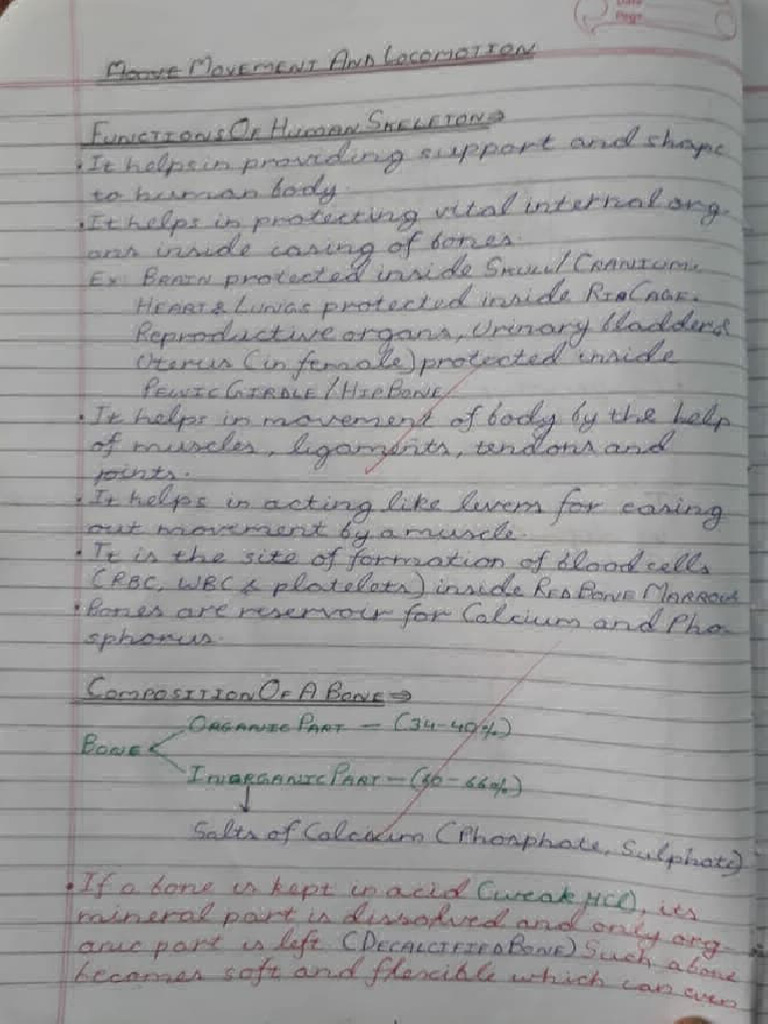 Date
Page
MOVEMENT AND LOCOMOTION
FUNCTIONS OF HUMAN SKELETON⇒
• It helps in providing support and shape
to human body.
• It helps in protecting vital internal org-
ans inside casing of bones.
Ex BRAIN protected inside SKULL/CRANIUM.
HEART & LUNGS protected inside RIBCAGE.
Reproductive organs, Urinary bladder &
Uterus (in female) protected inside
PELVIC GIRDLE/HIPBONE
• It helps in movement of body by the help
of muscles, ligaments, tendons and
joints.
• It helps in acting like levers for casing
out movement by a muscle.
• It is the site of formation of blood cells
(RBC, WBC & platelets) inside RED BONE MARROW
• Bones are reservoir for Calcium and Pho-
sphorus.
COMPOSITION OF A BONE⇒
ORGANIC PART - (34-40%)
BONE
INORGANIC PART - (60-66%)
Salts of Calcium (Phosphate, Sulphate)
• If a bone is kept in acid (weak HCl), its
mineral part is dissolved and only org-
anic part is left (DECALCIFIED BONE) Such a bone
becomes soft and flexible which can even